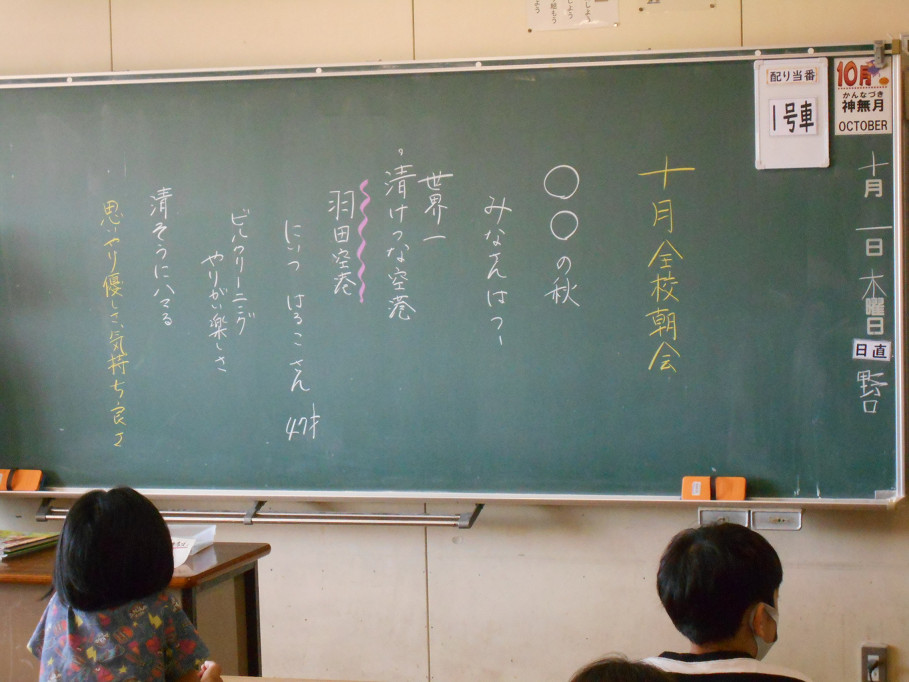 10月
かんなづき
神無月
OCTOBER
配り当番
1号車
十月一日木曜日
日直
野口
十月全校朝会
○○の秋
みなさんは?
世界一
清けつな空港
羽田空港
にいつ はるこさん 47才
ビルクリーニング
やりがい楽しさ
清そうにハマる
思いやり優しさ、気持ち良さ